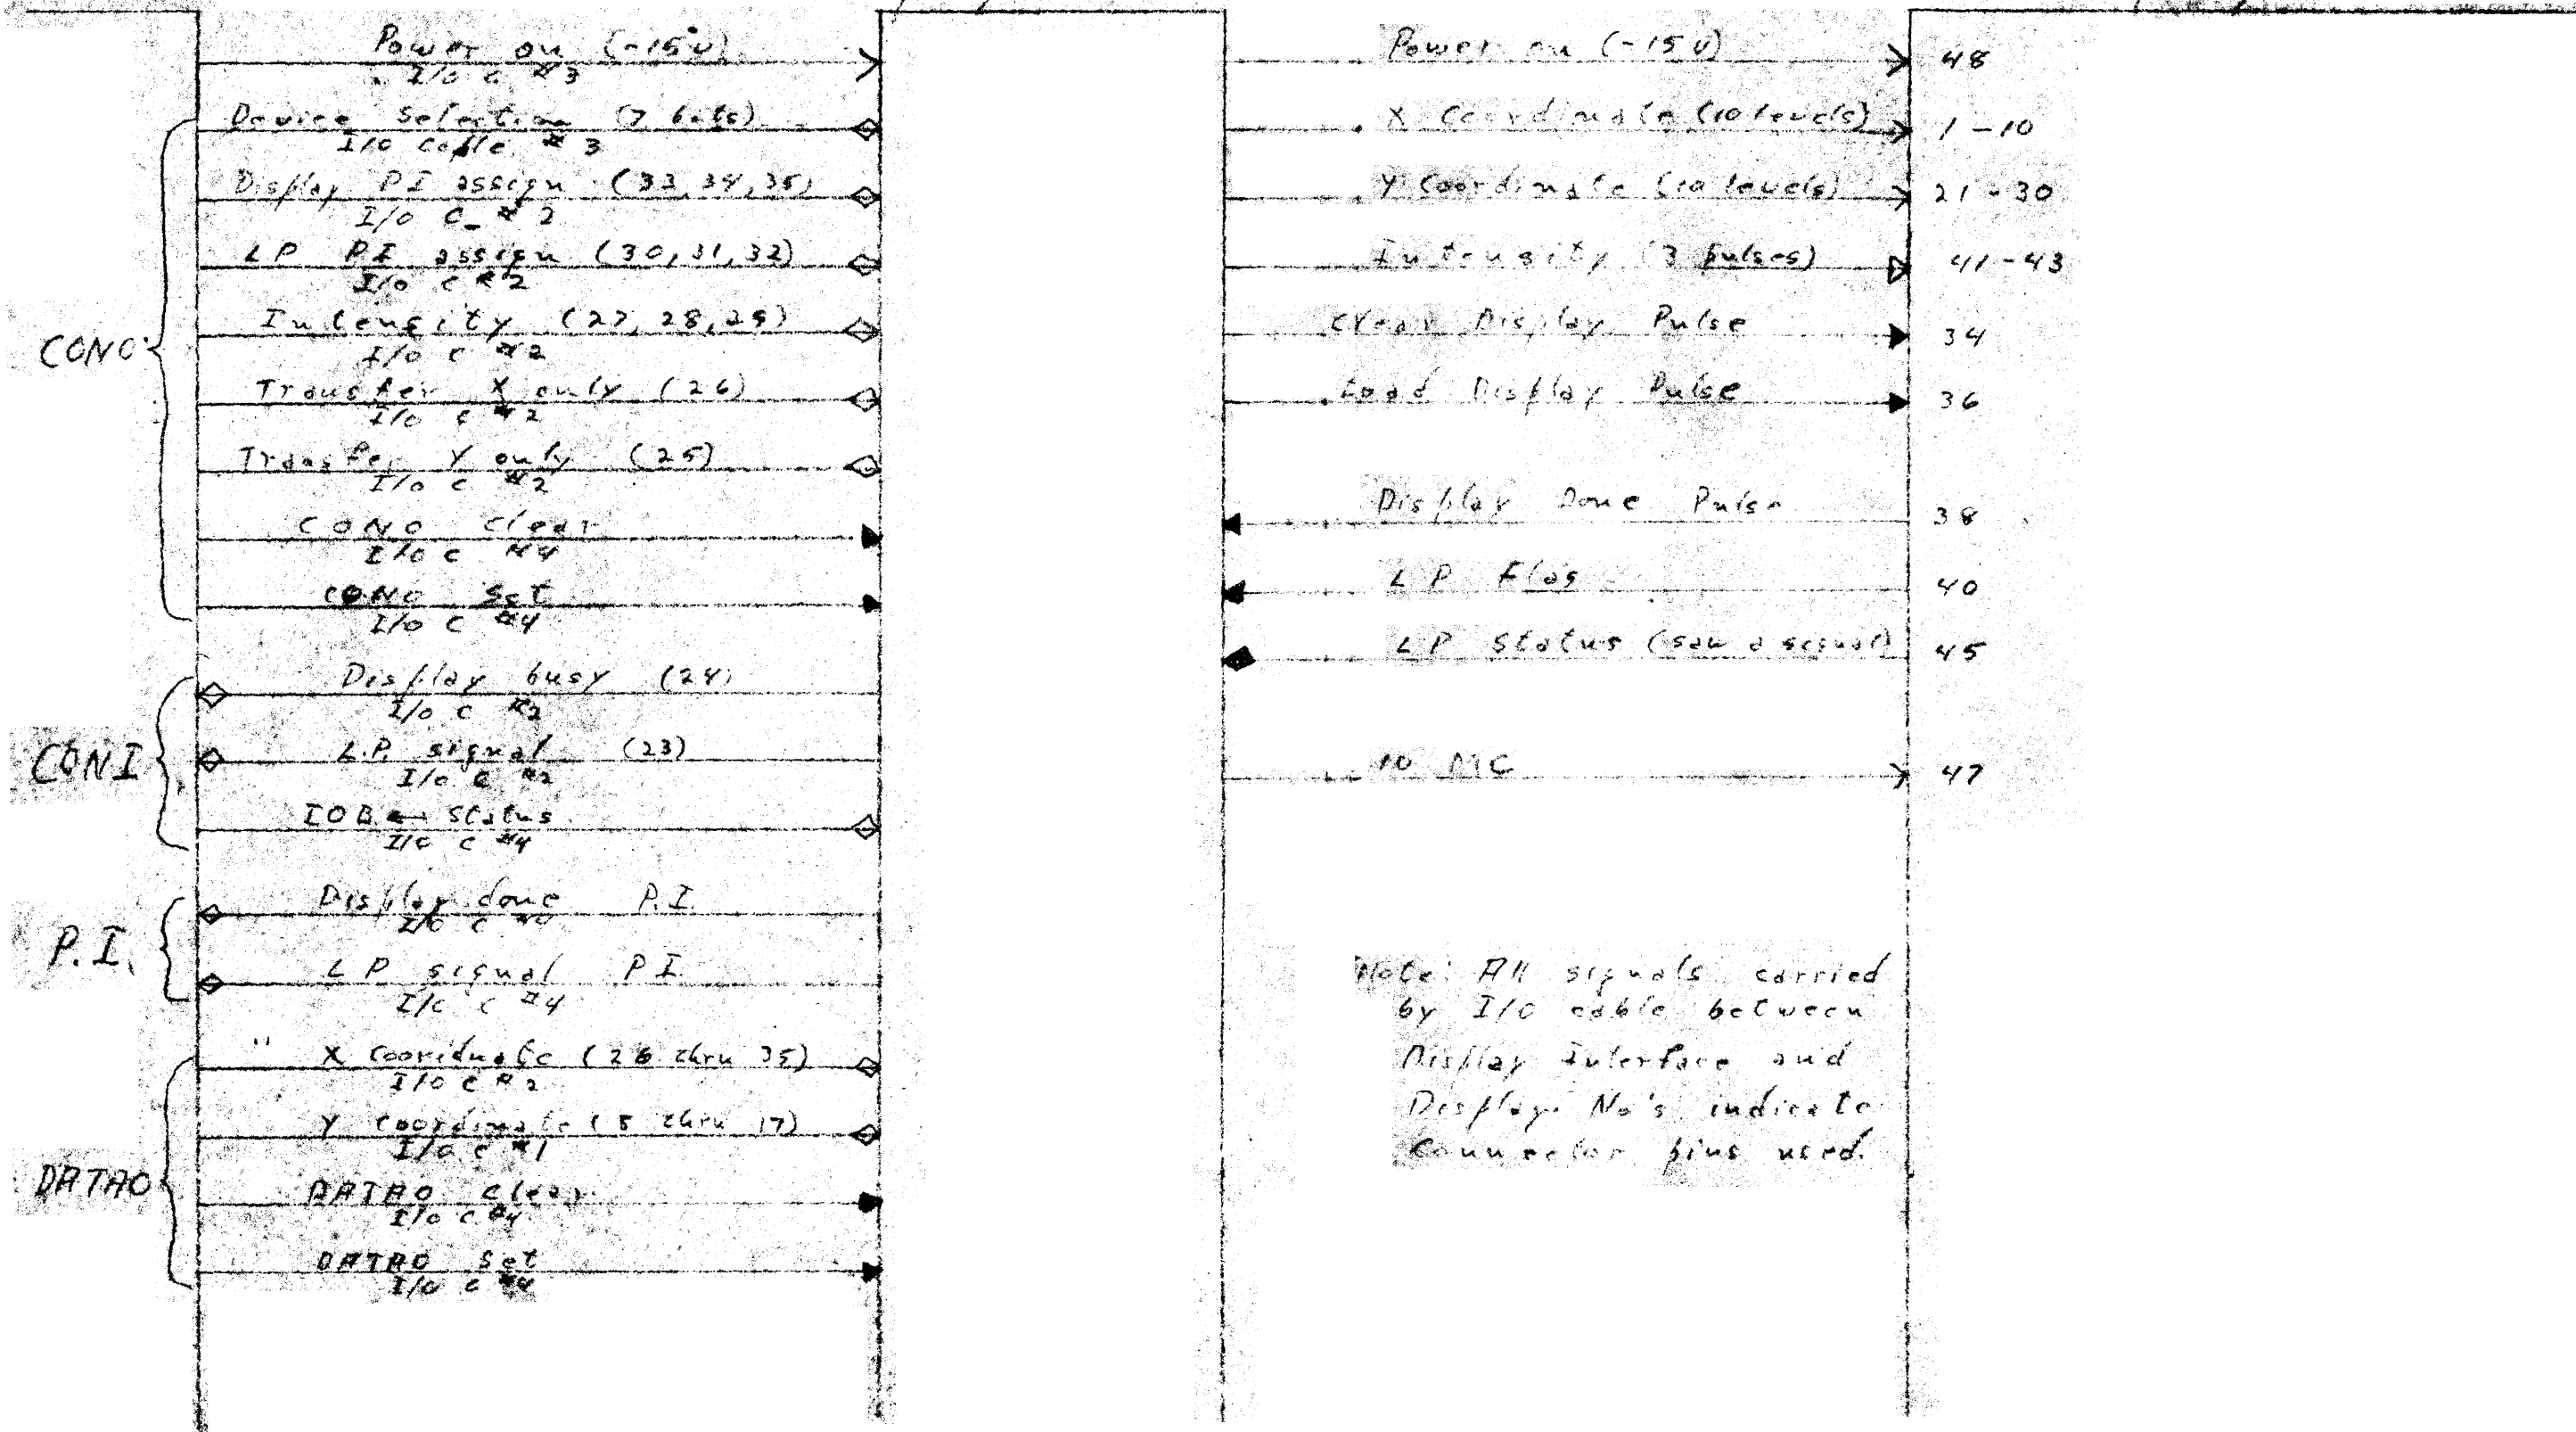 Power on (-15v)
I/O C #3
Device Selection (7 bits)
I/O Cable #3
Display PI assign (33,34,35)
I/O C #2
LP PI assign (30,31,32)
I/O C #2
Intensity (27,28,29)
I/O C #2
Transfer X only (26)
I/O C #2
Transfer Y only (25)
I/O C #2
CONO Clear
I/O C #4
CONO Set
I/O C #4
CONO
Display busy (24)
I/O C #2
L.P. signal (23)
I/O C #2
IOB ← Status
I/O C #4
CONI
Display done P.I.
I/O C
LP signal P.I.
I/O C #4
P.I.
" X Cooridnate (26 thru 35)
I/O C #2
Y Coordinate (8 thru 17)
I/O C #1
DATAO Clear
I/O C #4
DATAO Set
I/O C #4
DATAO
Power on (-15v) 48
X Coordinate (10 levels) 1-10
Y Coordinate (10 levels) 21-30
Intensity (3 pulses) 41-43
Clear Display Pulse 34
Load Display Pulse 36
Display Done Pulse 38
LP Flag 40
LP Status (saw a signal) 45
10 MC 47
Note: All signals carried
by I/O cable between
Display Interface and
Display. No's indicate
Connector pins used.